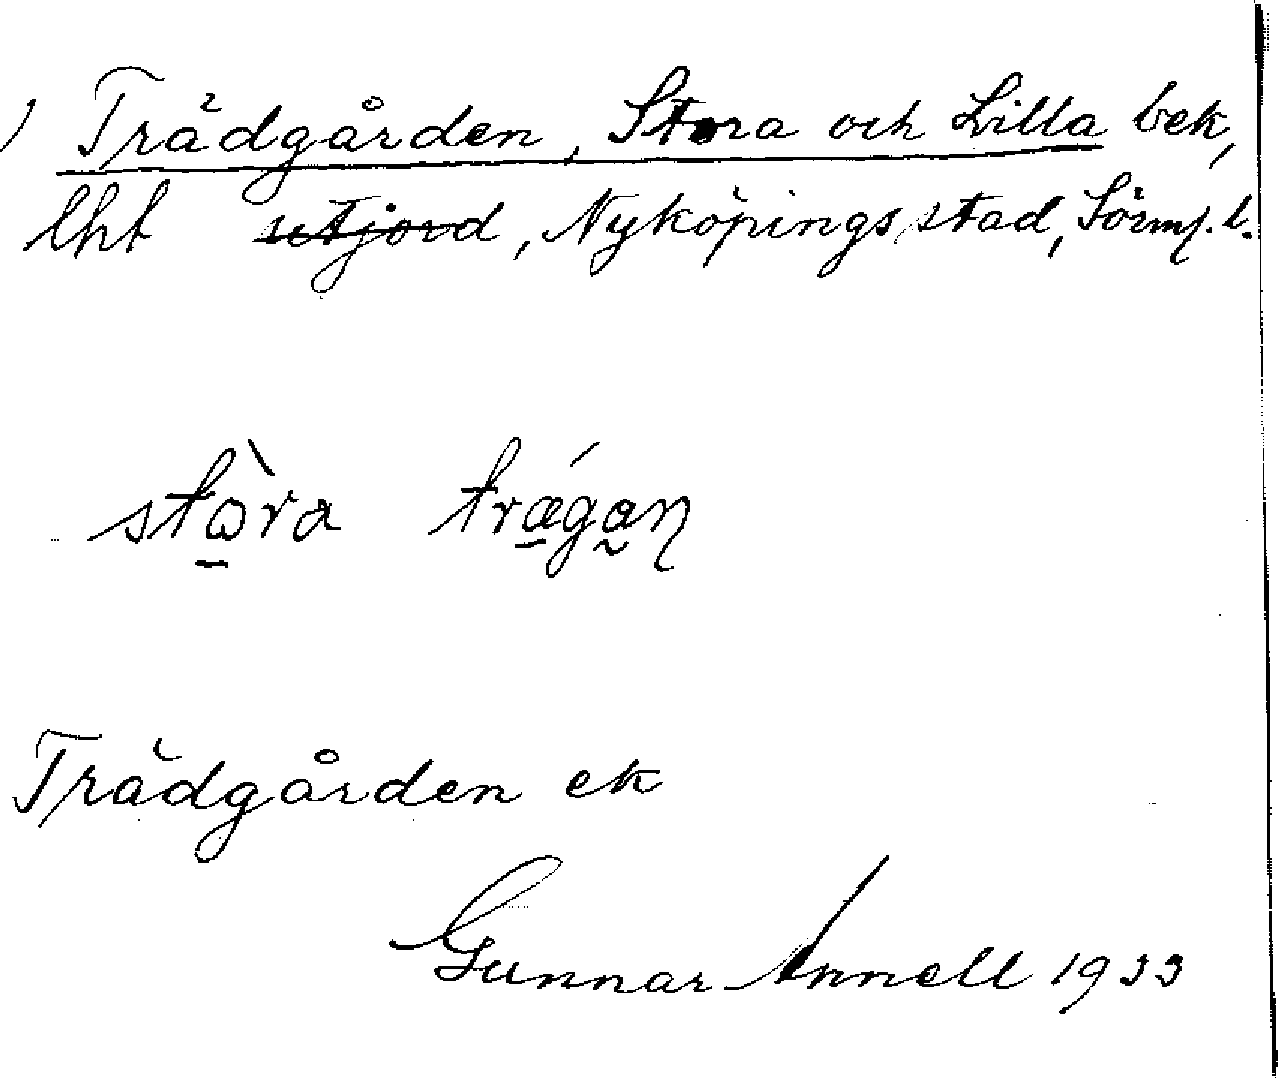 ) Trädgården, Stora och Lilla bek,
lht utjord, Nyköpings stad, Sörml. l.
stὼ̲ra trǽ̲ga̰ṇ
Trädgården ek
Gunnar Annell 1933